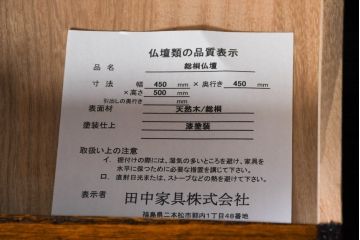 仏壇類の品質表示
品名 総桐仏壇
寸法 幅 450 mm × 奥行き 450 mm
× 高さ 500 mm
引出しの奥行き mm
表面材 天然木/総桐
塗装仕上 漆塗装
取扱い上の注意
イ. 据付けの際には、湿気の多いところを避け、家具を
水平に保つために必要な措置を講じて下さい。
ロ. 直射日光または、ストーブなどの熱を避けて下さい。
表示者 田中家具株式会社
福島県二本松市郭内1丁目48番地